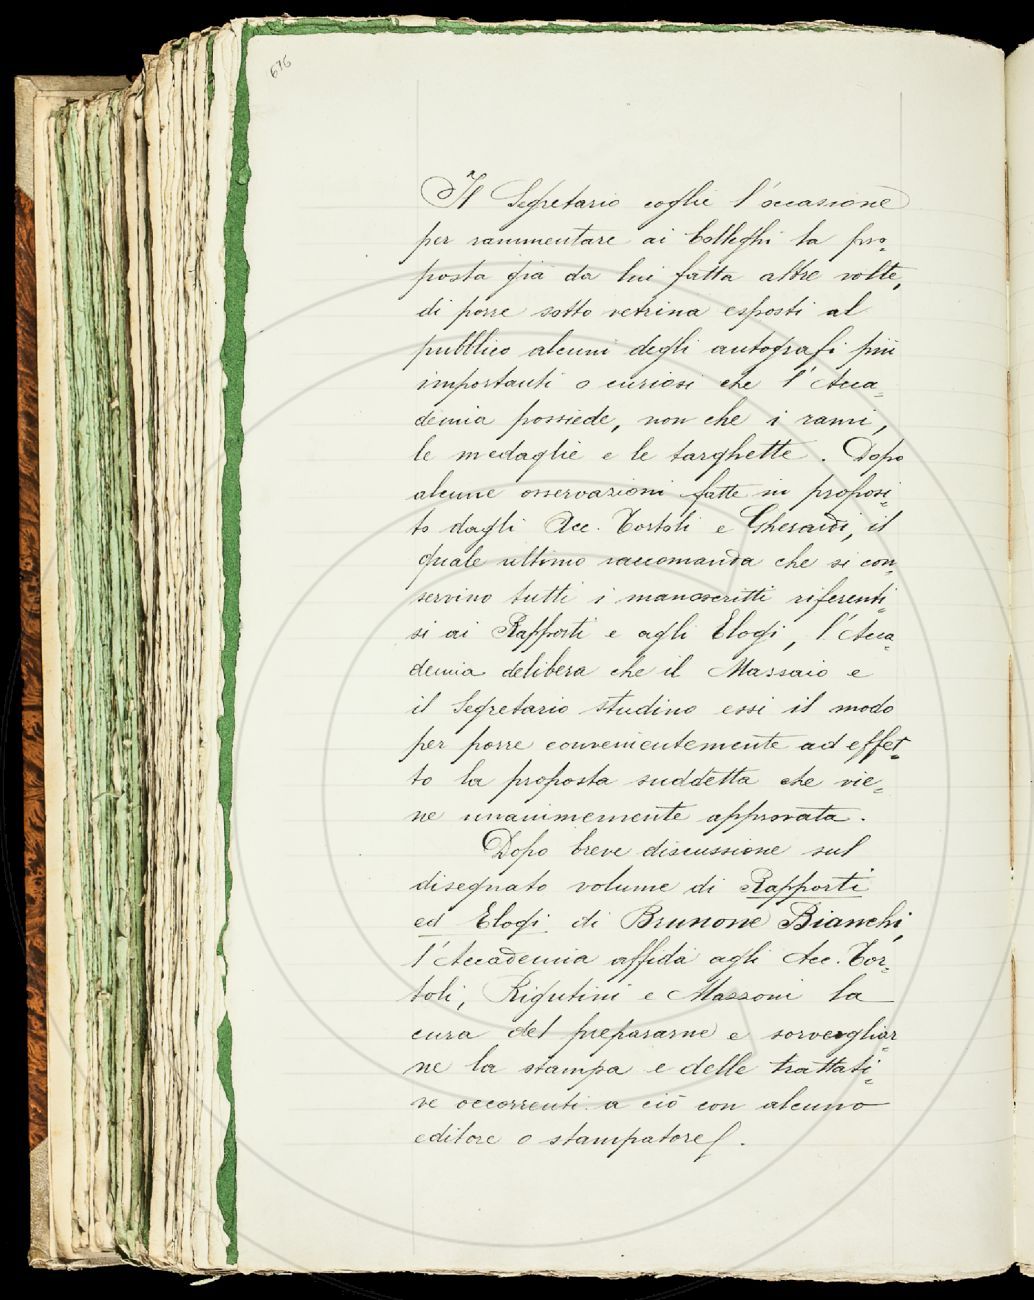 676
Il Segretario coglie l'occasione
per rammentare ai Colleghi la pro=
posta già da lui fatta altre volte,
di porre sotto vetrina esposti al
pubblico alcuni degli autografi più
importanti o curiosi che l'Acca=
demia possiede, non che i rami,
le medaglie e le targhette. Dopo
alcune osservazioni fatte in proposi=
to dagli Acc. Tortoli e Gherardi, il
quale ultimo raccomanda che si con=
servino tutti i manoscritti riferenti=
si ai Rapporti e agli Elogi, l'Acca=
demia delibera che il Massaio e
il Segretario studino essi il modo
per porre convenientemente ad effet=
to la proposta suddetta che vie=
ne unanimemente approvata.
Dopo breve discussione sul
disegnato volume di Rapporti
ed Elogi di Brunone Bianchi,
l'Accademia affida agli Acc. Tor=
toli, Rigutini e Mazzoni la
cura del prepararne e sorvegliar=
ne la stampa e delle trattati=
ve occorrenti a ciò con alcuno
editore o stampatore.